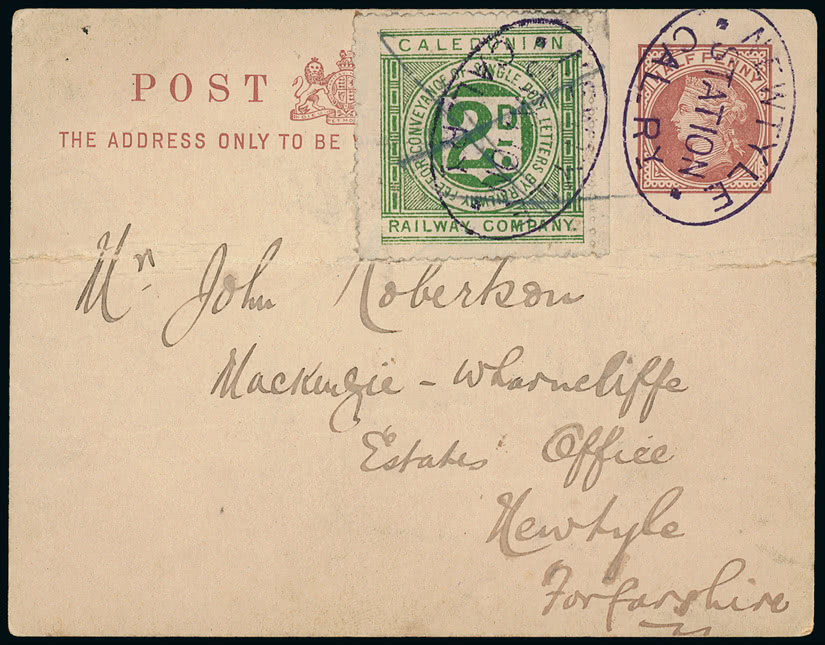 POST
THE ADDRESS ONLY TO BE
CALEDONIAN
FEE FOR CONVEYANCE OF SINGLE POST LETTERS BY RAILWAY
2D
RAILWAY COMPANY.
HALFPENNY
NEWTYLE
STATION
CAL. RY
Mr John Robertson
Mackenzie - Wharncliffe
Estates Office
Newtyle
Forfarshire